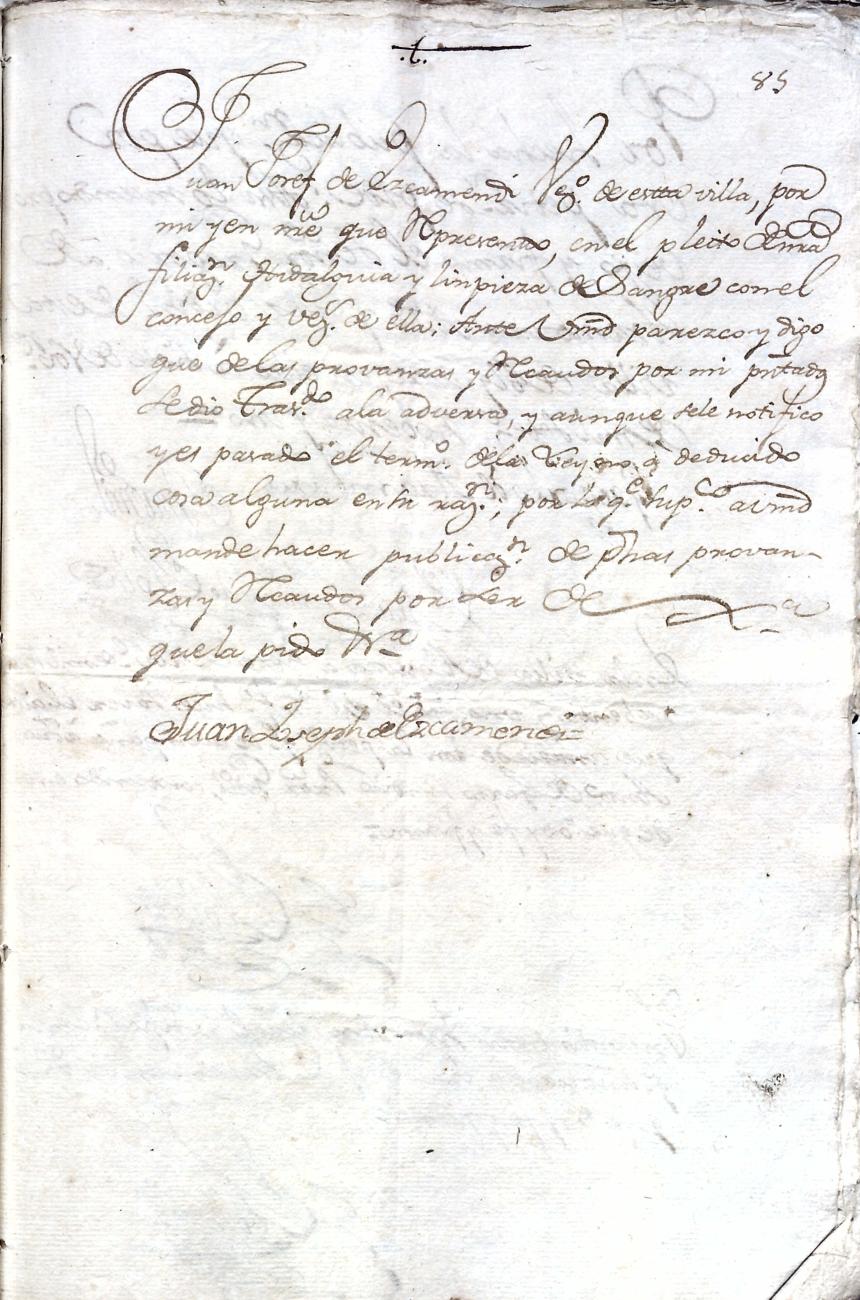 85
Juan Josef de Ezcamendi Vezo. de estta villa, por
mi y en nre que Represento, en el pleito de nra
filiazn. Hidalguia y linpieza de Sangre con el
concejo y vezs. de ella; Ante Vmd parezco y digo
que de las provanzas y Recaudos por mi pntados
se dio Trasdo. ala adversa, y aunque sele notifico
y es pasado el termo. dela Ley, no a deducido
cosa alguna en su razn., por lo qe. supco. avmd
mande hacer publicazn. de dhas provan-
zas y Recaudos por ser de Xa
que la pido Vra
Juan Joseph de Ezcamendi